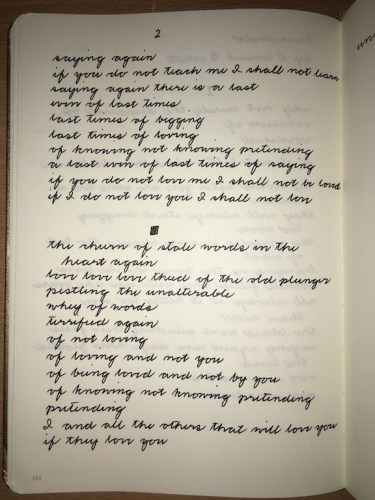 2
saying again
if you do not teach me I shall not learn
saying again there is a last
even of last times
last times of begging
last times of loving
of knowing not knowing pretending
a last even of last times of saying
if you do not love me I shall not be loved
if I do not love you I shall not love
the churn of stale words in the
heart again
love love love thud of the old plunger
pestling the unalterable
whey of words
terrified again
of not loving
of loving and not you
of being loved and not by you
of knowing not knowing pretending
pretending
I and all the others that will love you
if they love you